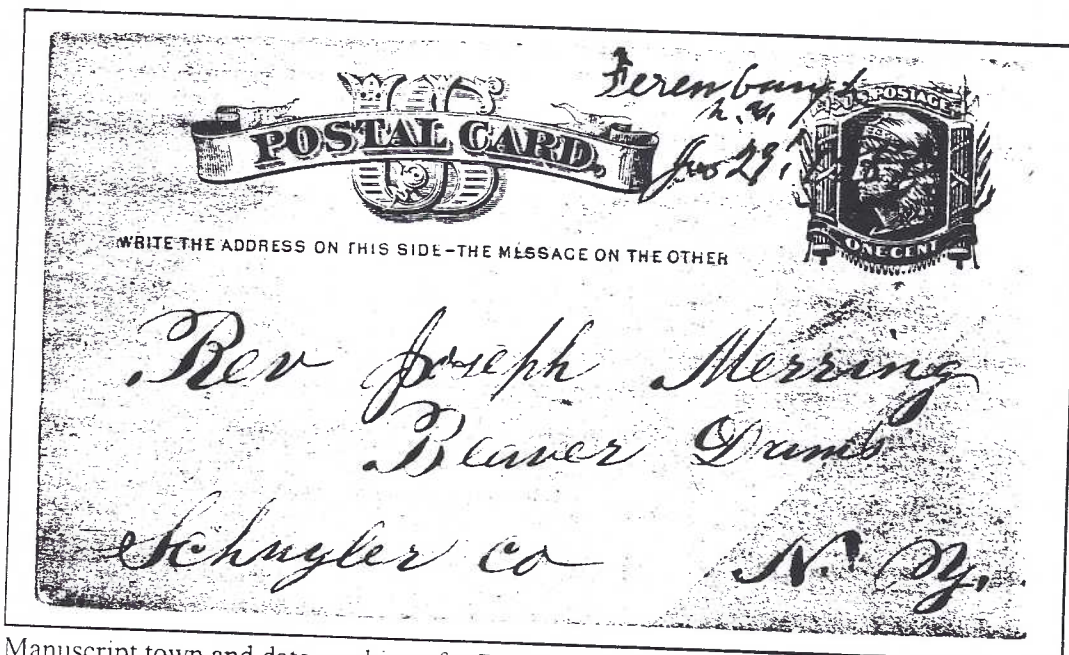 Ferenbaugh
N.Y.
Jan 29,
U.S. POSTAGE
US
POSTAL CARD.
ONE CENT
WRITE THE ADDRESS ON THIS SIDE-THE MESSAGE ON THE OTHER
Rev Joseph Merring
Beaver Dams
Schuyler co N. Y.
Manuscript town and date